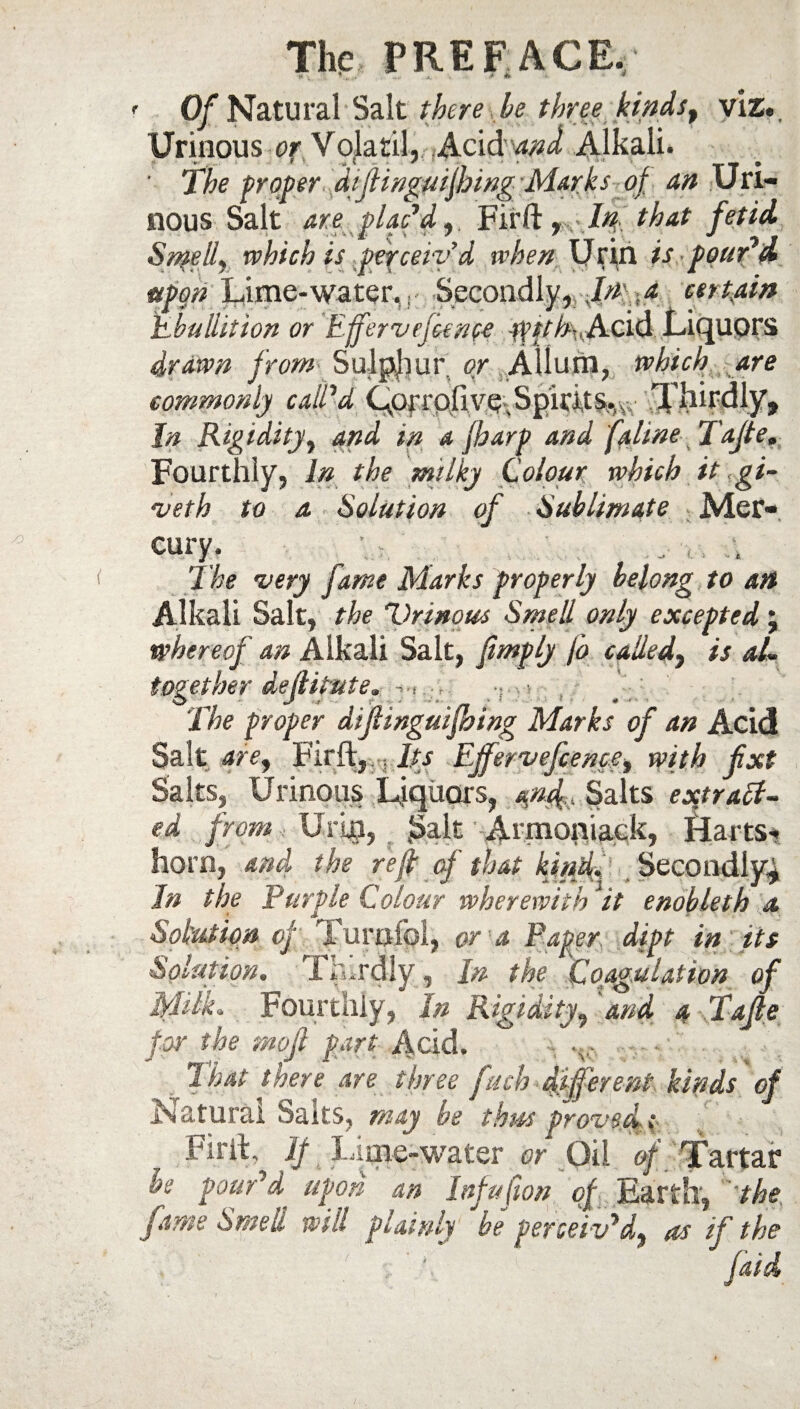 The PREFACE.
Of Natural Salt there be three kinds, viz.
Urinous or Volatil, Acid and Alkali.
The proper diſtinguiſhing Marks of an Uri-
nous Salt are plac'd, Firſt, In that fetid
Smell, which is perceiv'd when Urin is pour'd
upon Lime-water. Secondly, In a certain
Ebullition or Efferveſcence with Acid Liquors
drawn from Sulphur or Allum, which are
commonly call'd Corroſive Spirits. Thirdly,
In Rigidity, and in a ſharp and ſaline Taſte.
Fourthly, In the milky Colour which it gi-
veth to a Solution of Sublimate Mer-
cury.
The very ſame Marks properly belong to an
Alkali Salt, the Urinous Smell only excepted;
whereof an Alkali Salt, ſimply ſo called, is al-
together deſtitute.
The proper diſtinguiſhing Marks of an Acid
Salt are, Firſt, Its Efferveſcence, with fixt
Salts, Urinous Liquors, and Salts extract-
ed from Urin, Salt Armoniack, Harts-
horn, and the reſt of that kind. Secondly,
In the Purple Colour wherewith it enobleth a
Solution of Turnſol, or a Paper dipt in its
Solution. Thirdly, In the Coagulation of
Milk. Fourthly, In Rigidity, and a Taſte
for the moſt part Acid.
That there are three ſuch different kinds of
Natural Salts, may be thus proved:
Firſt, If Lime-water or Oil of Tartar
be pour'd upon an Infuſion of Earth, the
ſame Smell will plainly be perceiv'd, as if the
ſaid